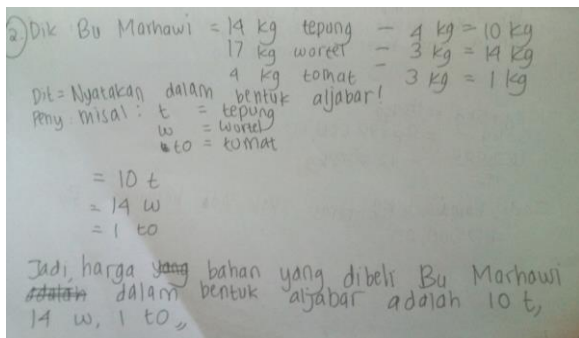 2. Dik Bu Marhawi = 14 kg tepung - 4 kg = 10 kg
17 kg wortel - 3 kg = 14 kg
4 kg tomat - 3 kg = 1 kg
Dit = Nyatakan dalam bentuk aljabar!
Peny : misal : t = tepung
w = wortel
to = tomat
= 10 t
= 14 w
= 1 to
Jadi, harga yang bahan yang dibeli Bu Marhawi
adalah dalam bentuk aljabar adalah 10 t,
14 w, 1 to,,